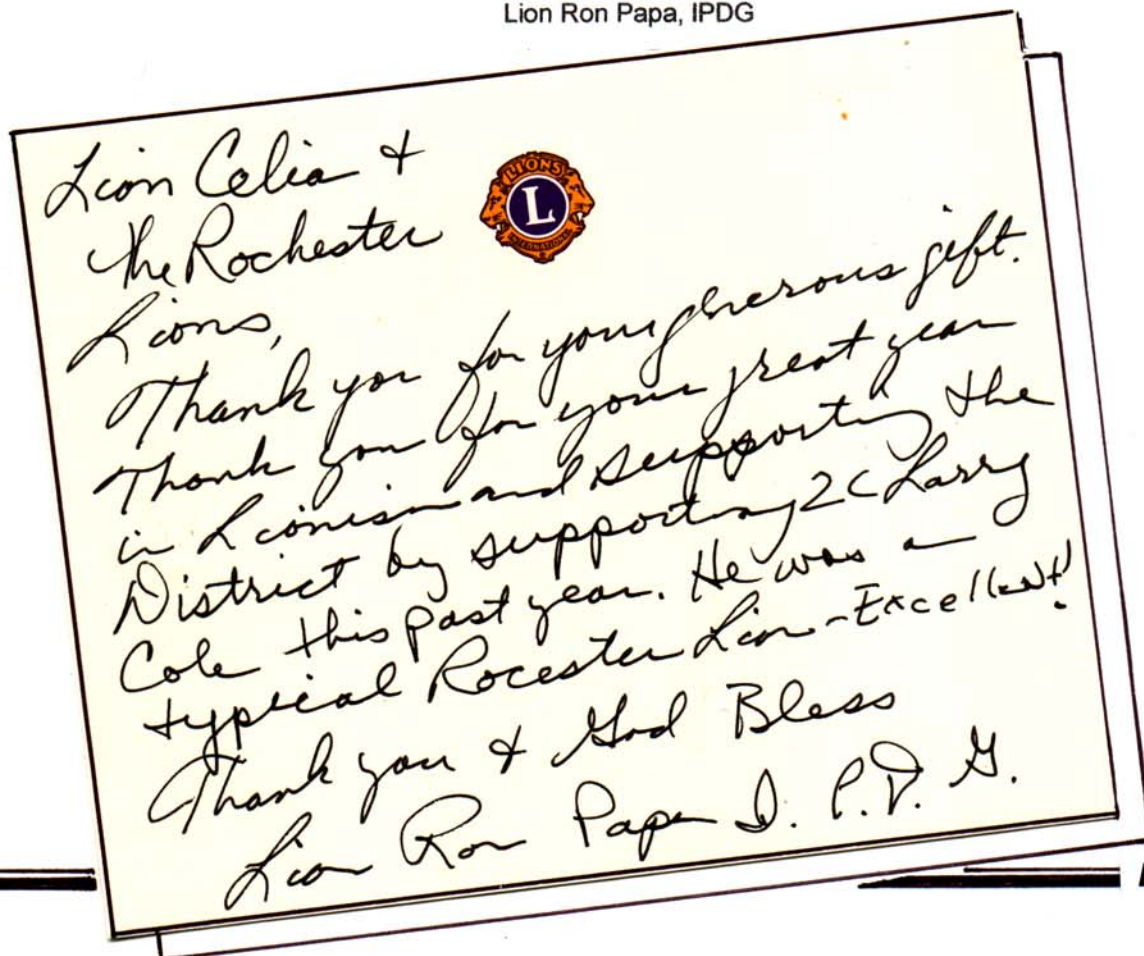 Lion Ron Papa, IPDG
Lion Celia &
the Rochester
Lions,
LIONS
L
INTERNATIONAL
Thank you for your generous gift.
Thank you for your great year
in Lionism and supporting the
District by supporting 2C Larry
Cole this past year. He was a
typical Rocester Lion - Excellent!
Thank you & God Bless
Lion Ron Papa I. P. D. G.